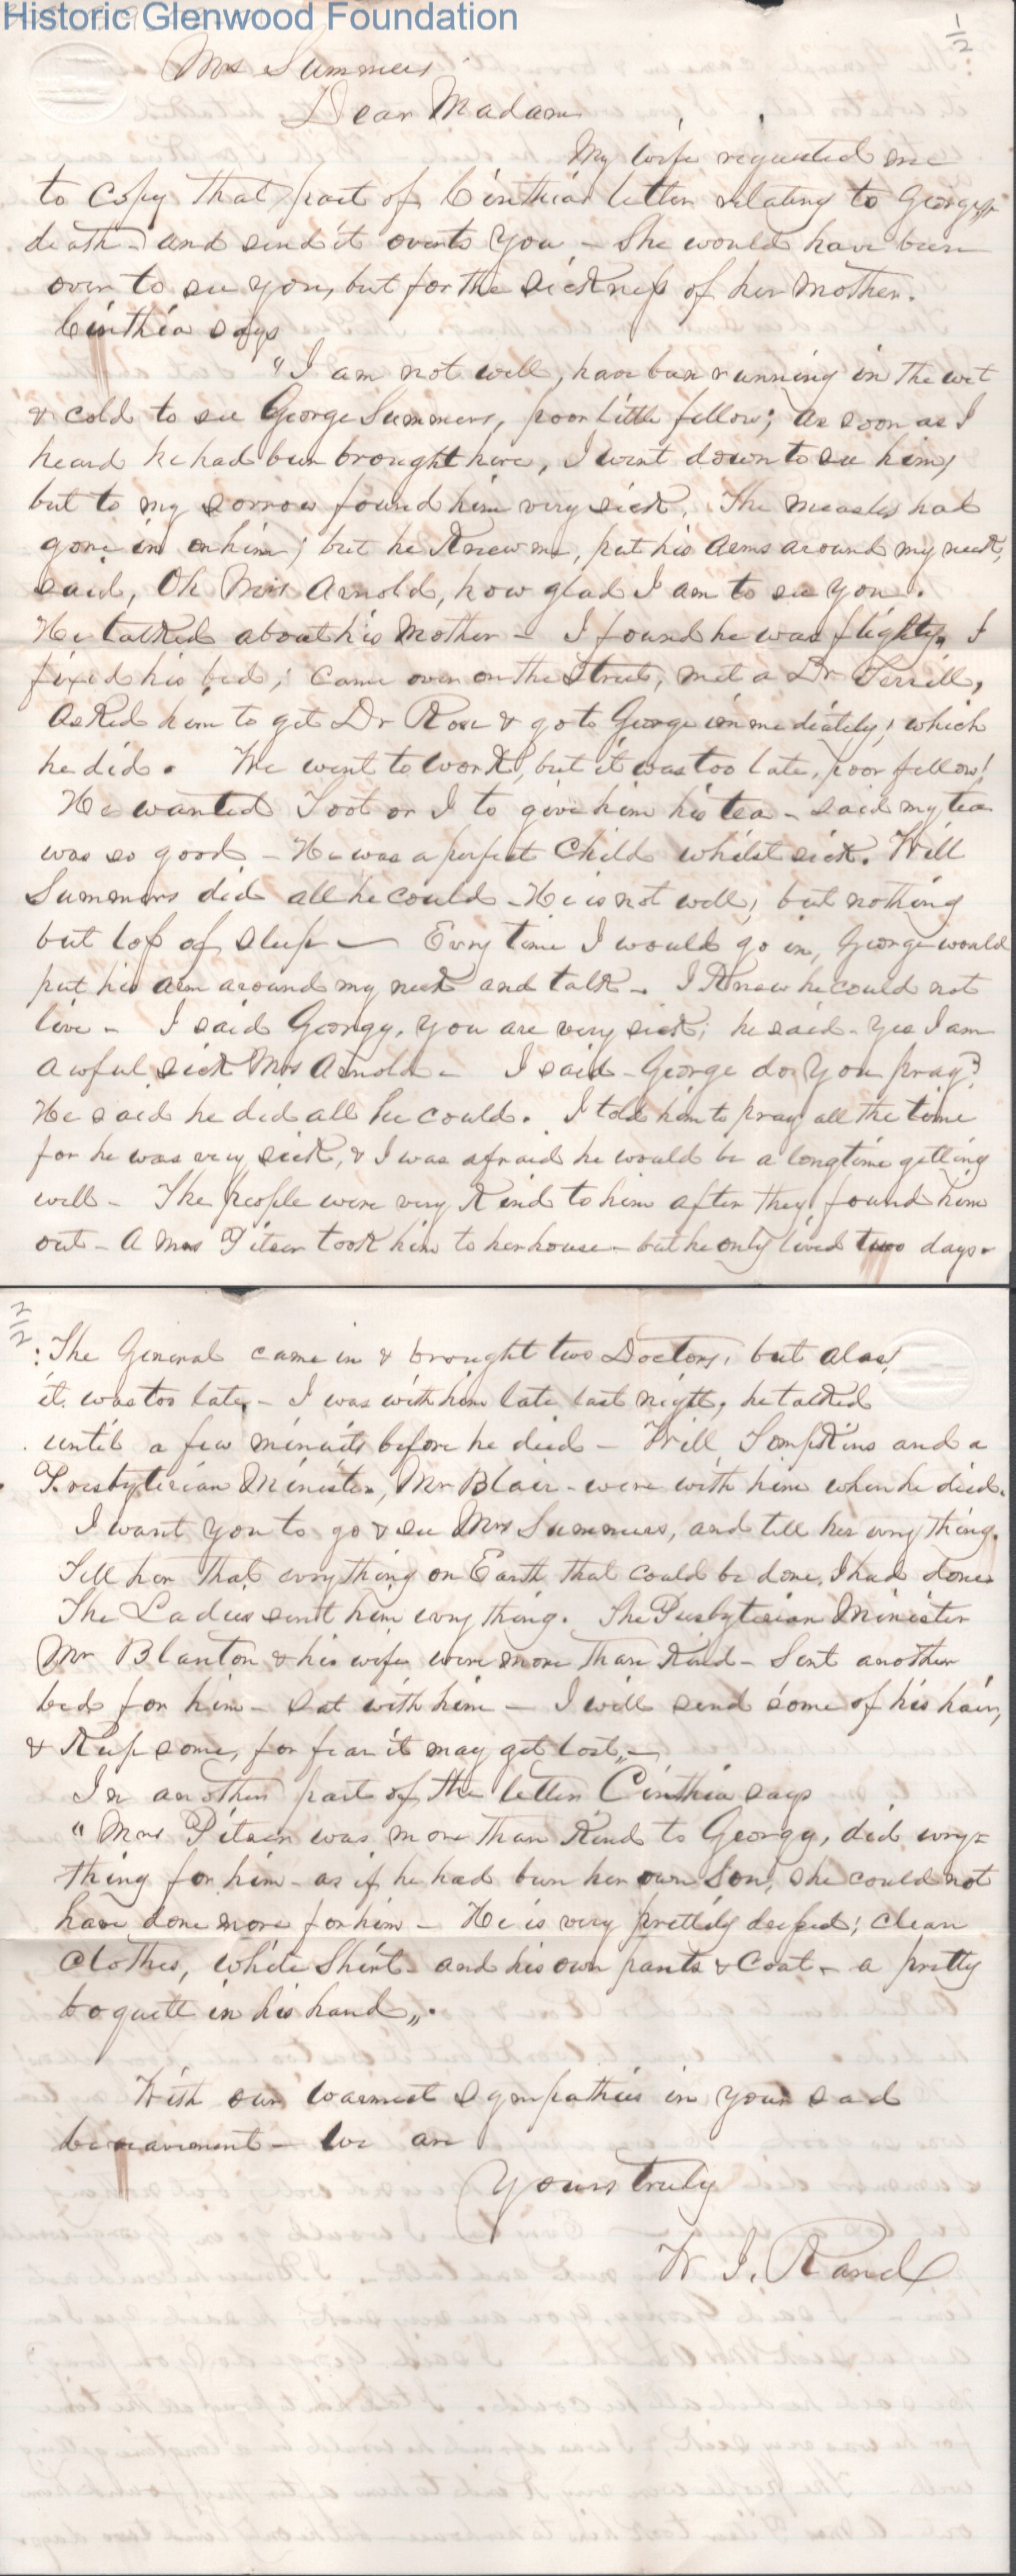 Historic Glenwood Foundation
1/2
Mrs Summers
Dear Madam
My wife requested me
to copy that part of Cinthia's letter relating to Georges
death - and send it over to you - She would have been
over to see you, but for the sickness of her mother.
Cinthia says
"I am not well, have been running in the wet
& cold to see George Summers, poor little fellow; as soon as I
heard he had been brought here, I went down to see him,
but to my sorrow found him very sick. The measles had
gone in on him; but he knew me, put his arms around my neck,
said, Oh Mrs Arnold, how glad I am to see you.
He talked about his mother - I found he was flighty, I
fixed his bed; came over on the Street, met a Dr Terrill,
asked him to get Dr Rose & go to George immediately, which
he did. We went to work, but it was too late, poor fellow!
He wanted Toot or I to give him his tea - said my tea
was so good - He was a perfect child whilst sick. Will
Summers did all he could - He is not well, but nothing
but loss of sleep - Every time I would go in, George would
put his arm around my neck and talk - I knew he could not
live - I said Georgy, you are very sick; he said - Yes I am
awful sick Mrs Arnold - I said - George do you pray?
He said he did all he could. I told him to pray all the time
for he was very sick, & I was afraid he would be a long time getting
well - The people were very kind to him after they found him
out - A Mrs Pitzer took him to her house - but he only lived two days -
2/2
: The General came in & brought two Doctors, but alas!
it was too late, - I was with him late last night, he talked
until a few minuits before he died - Will Tompkins and a
Presbyterian Minister, Mr Blair - were with him when he died.
I want you to go & see Mrs Summers, and tell her every thing.
Tell her that everything on Earth that could be done, I had done
The Ladies sent him every thing. The Presbyterian Minister
Mr Blanton & his wife were more than kind - Sent another
bed for him - sat with him - I will send some of his hair,
& keep some, for fear it may get lost,, -
In another part of the letter Cinthia says
"Mrs Pitzer was more than kind to Georgy, did every=
thing for him - as if he had been her own Son, she could not
have done more for him - He is very prettily dressed; clean
clothes, white Shirt - and his own pants & Coat - a pretty
boquett in his hand,,.
With our warmest sympathies in your sad
bereavement - we are
Yours truly
W. J. Rand